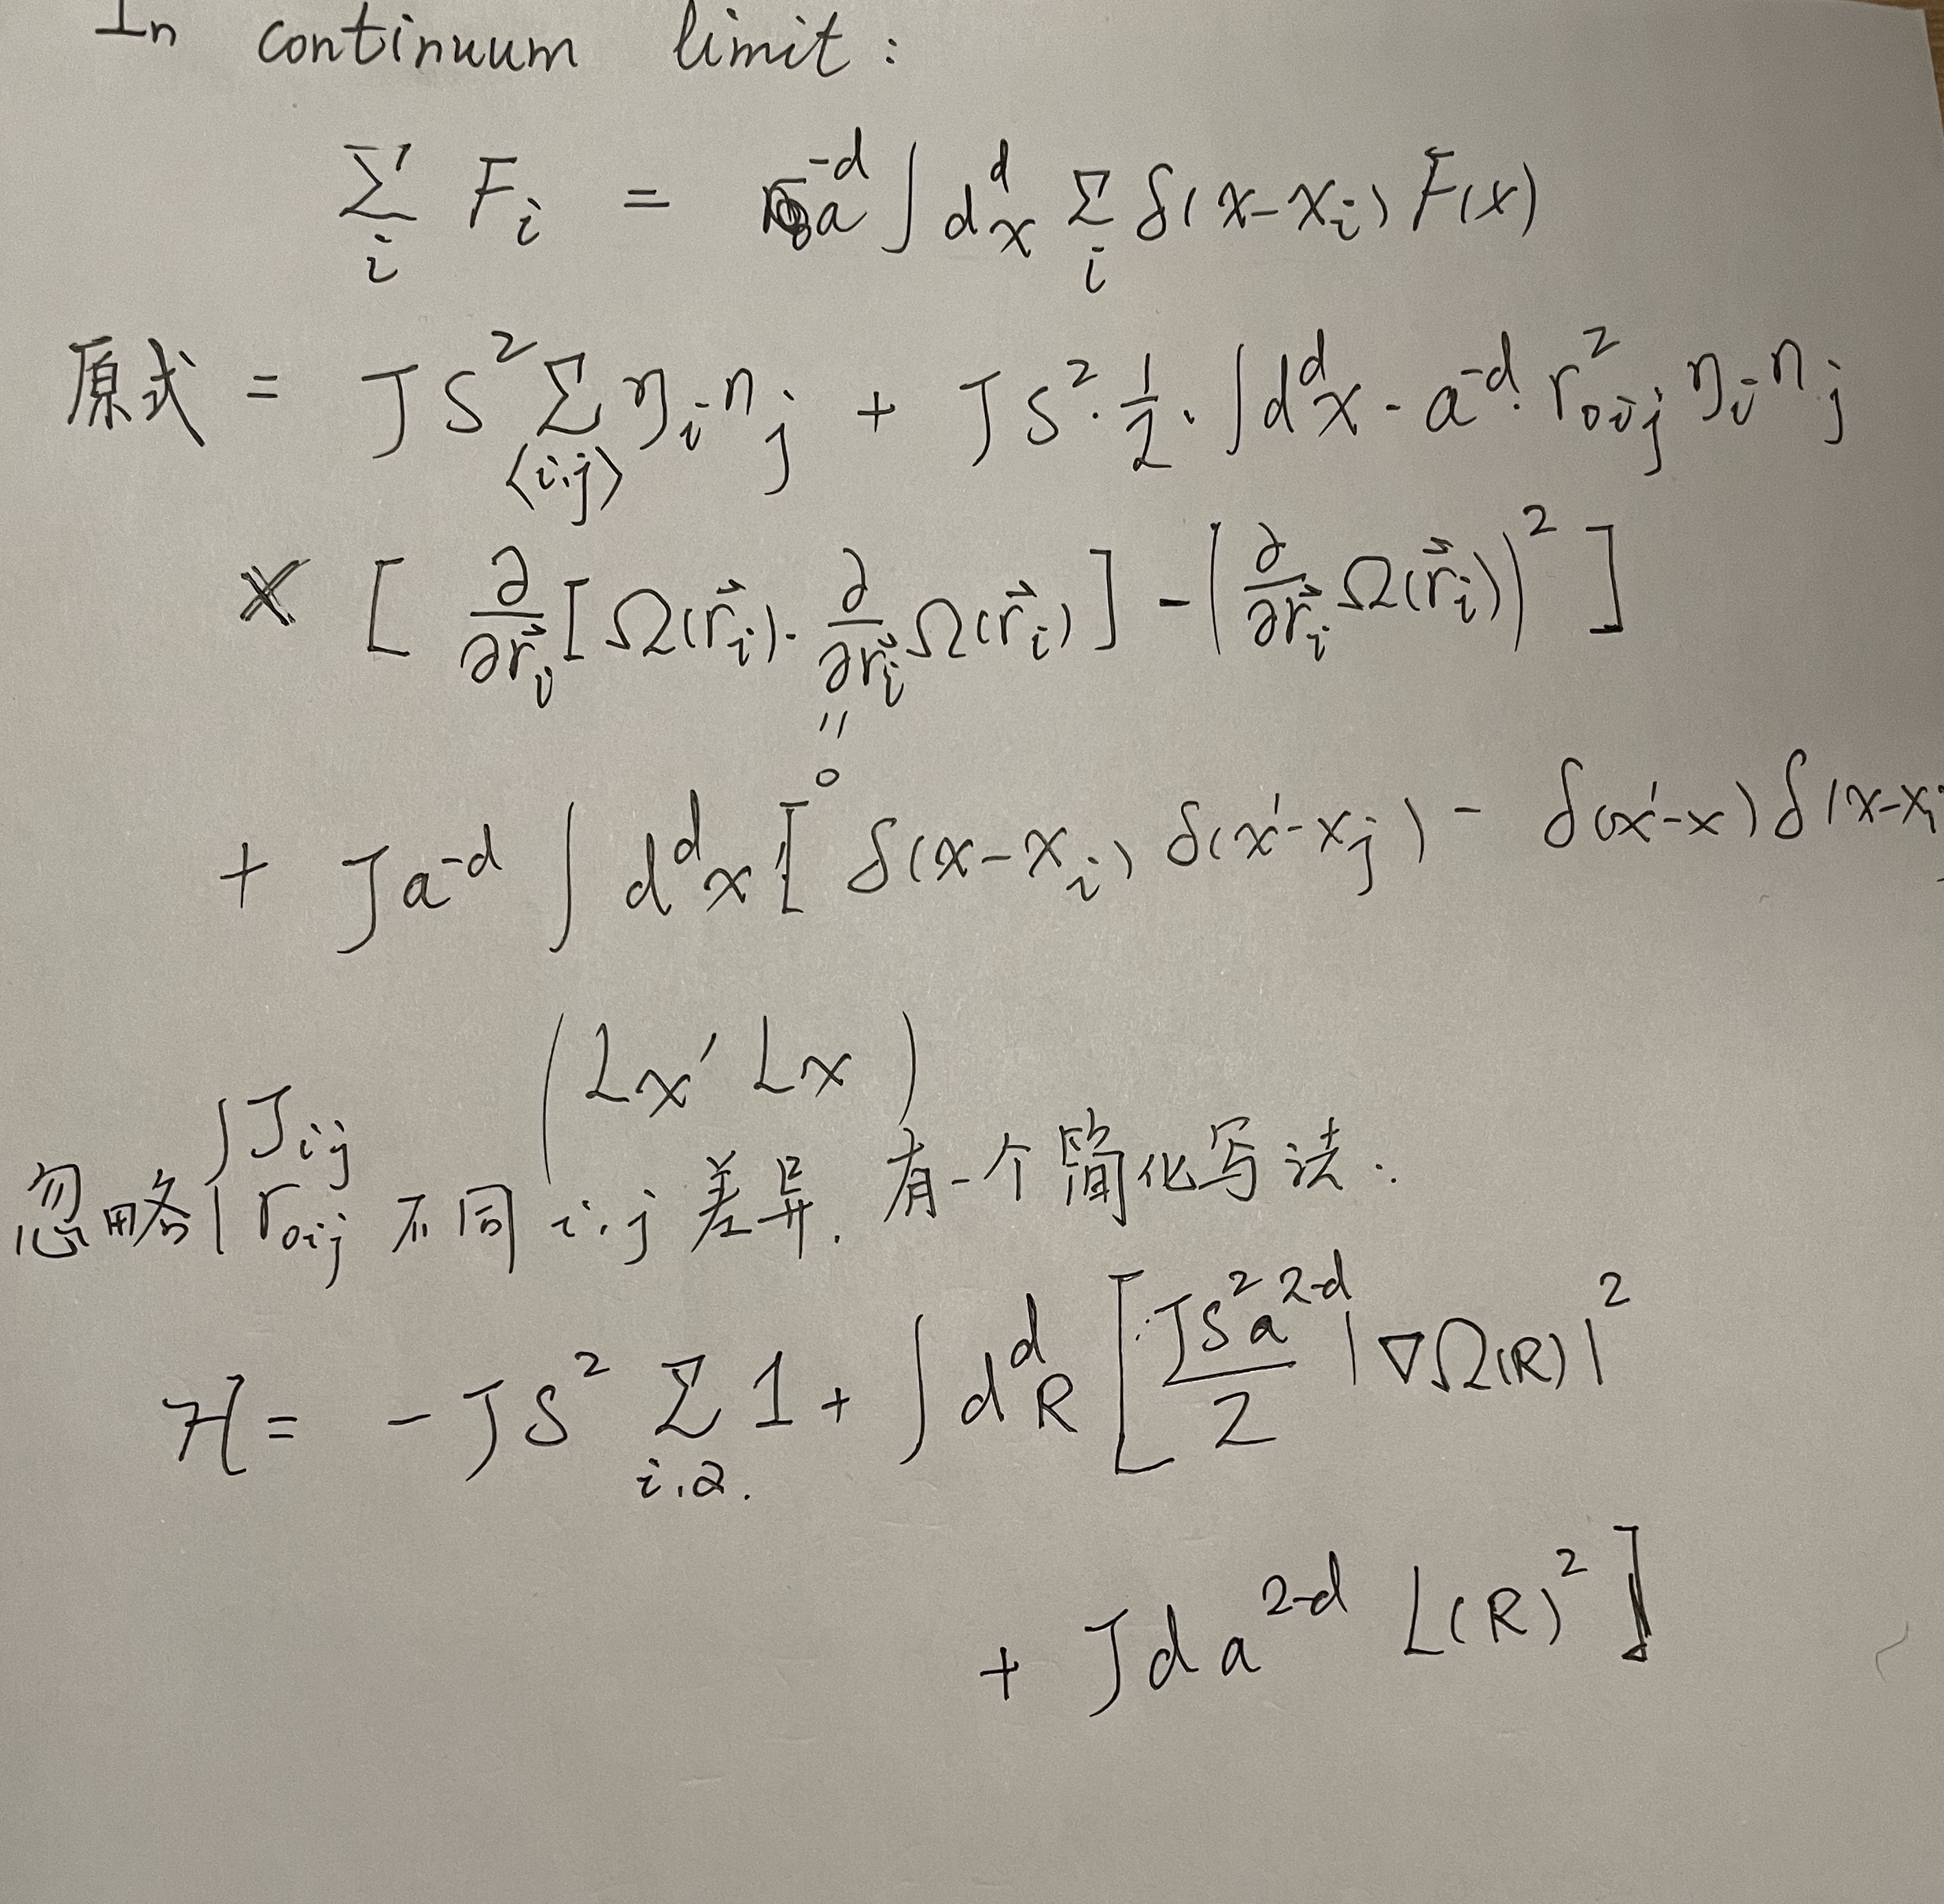 In continuum limit:
∑_i F_i = a^{-d} ∫ d^d x ∑_i δ(x-x_i) F(x)
原式 = J S^2 ∑_{⟨i.j⟩} η_i η_j + J S^2 · 1/2 · ∫ d^d x · a^{-d} · r_{0ij}^2 η_i η_j
× [ ∂/∂r⃗_i [ Ω(r⃗_i) · ∂/∂r⃗_i Ω(r⃗_i) ] - ( ∂/∂r⃗_i Ω(r⃗_i) )^2 ]
"
0
+ J a^{-d} ∫ d^d x [ δ(x-x_i) δ(x'-x_j) - δ(x'-x) δ(x-x_i
( L x' L x )
忽略 { J_{ij} r_{0ij} 不同 i.j 差异. 有一个简化写法:
H = - J S^2 ∑_{i.a.} 1 + ∫ d^d R [ J S^2 a^{2-d} / 2 | ∇Ω(R) |^2
+ J d a^{2-d} L(R)^2 ]